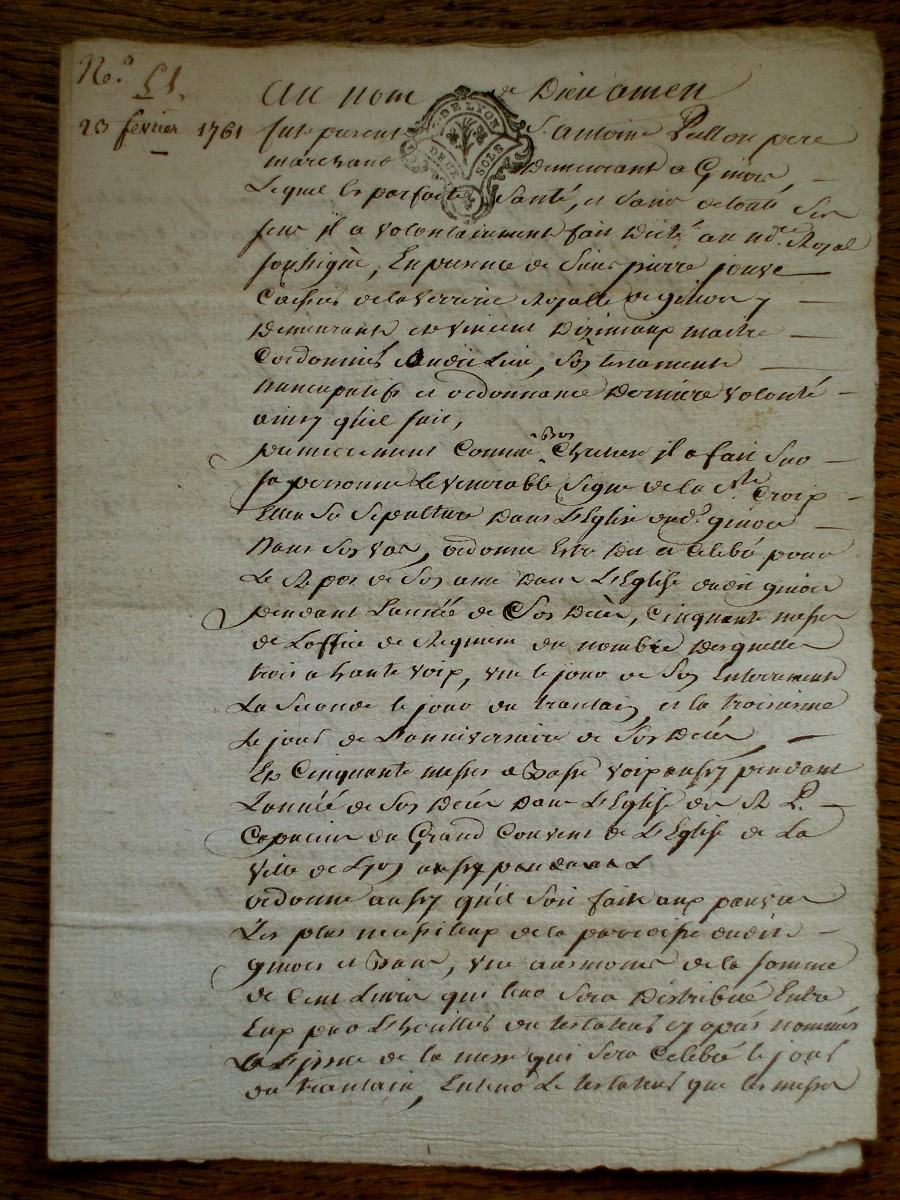 N.o 51.
23 février 1761
DE LYON
DEUX SOLS
Au nom de Dieu amen
fut present S.r antoine Pellon pere
marchand demeurant a Givors
Lequel en parfaite Santé, et Sain de touts Ses
sens il a volontairement fait dicté au nd.re Royal
soussigné, En presence de Sieurs pierre jouve
Caissier de la verrerie Royalle de givors y
demeurant et vincent maitre
Cordonnier audit Lieu, Son testament
nuncupatif et ordonnance derniere volonté
ainsy qu'il suit,
premierement Comme bon Chretien il a fait Sur
sa personne Le venerable Signe de la S.te Croix
Elleu Sa Sepulture dans L'Eglise dud.t givors
dans Son vas, ordonne Estre dit et Celebré pour
Le Repos de Son ame dans L'Eglise dudit givors
pendant L'année de Son décès, Cinquante messes
de L'office de Requiem du nombre desquelles
trois a haute voix, une le jour de Son Enterrement
La Seconde le jour du trantain, et la troisieme
le jour de L'anniversaire de Son décès
Et Cinquante messes a basse voix aussy pendant
L'année de Son décès dans L'Eglise des R. P.
Capucins du Grand Couvent de L'Eglise de La
ville de Lyon aussy
ordonne aussy qu'il Soit fait aux pauvres
Les plus necessiteux de la paroisse dudit
givors et Bans, une aumone de la somme
de Cent Livres qui leur Sera distribué Entre
Eux par L'heritier du testateur cy après nommé
a L'issue de la messe qui Sera Celebré le jour
du trantain, Entend Le testateur que les messes